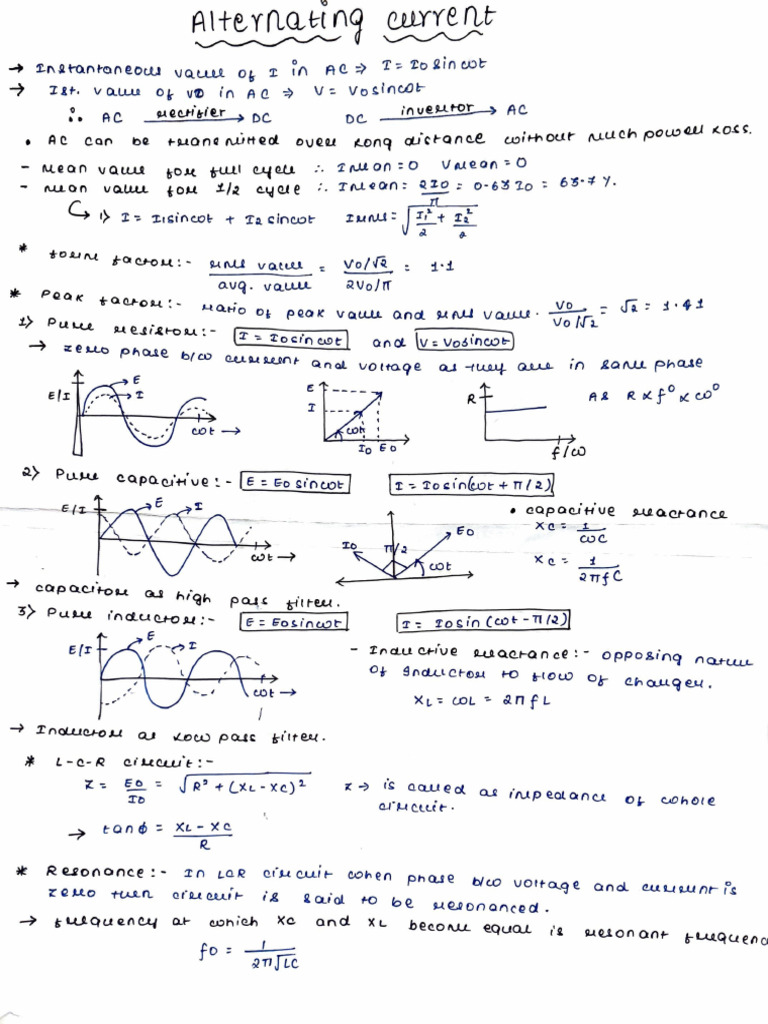 Alternating current
→ Instantaneous value of I in AC ⇒ I = I0 sin ωt
→ Ist. value of V in AC ⇒ V = V0 sin ωt
∴ AC rectifier → DC DC invertor → AC
• AC can be transmitted over long distance without much power loss.
- Mean value for full cycle ∴ I Mean = 0 V Mean = 0
- Mean value for 1/2 cycle ∴ I Mean = 2I0/π = 0.63 I0 = 63.7 %.
↳ 1) I = I1 sin ωt + I2 sin ωt Irms = √(I1²/2 + I2²/2)
* form factor:- rms value / avg. value = V0/√2 / 2V0/π = 1.1
* Peak factor:- Ratio of peak value and rms value. V0 / V0/√2 = √2 = 1.41
1) Pure resistor:- I = I0 sin ωt and V = V0 sin ωt
→ zero phase b/w current and voltage as they are in same phase
E/I E I ωt →
E I ωt I0 E0
R f/ω
As R ∝ f⁰ ∝ ω⁰
2) Pure capacitive:- E = E0 sin ωt I = I0 sin(ωt + π/2)
E/I E I ωt →
I0 π/2 E0 ωt
• capacitive reactance
XC = 1/ωC
XC = 1/2πfC
→ capacitor as high pass filter.
3) Pure inductor:- E = E0 sin ωt I = I0 sin (ωt - π/2)
E/I E I ωt →
- Inductive reactance:- opposing nature
of inductor to flow of charges.
XL = ωL = 2πfL
→ Inductor as low pass filter.
* L-C-R circuit:-
Z = E0/I0 = √(R² + (XL - XC)²) Z → is called as impedance of whole
circuit.
→ tan ϕ = XL - XC / R
* Resonance:- In LCR circuit when phase b/w voltage and current is
zero then circuit is said to be resonanced.
→ frequency at which XC and XL become equal is resonant frequenc
f0 = 1/2π√LC